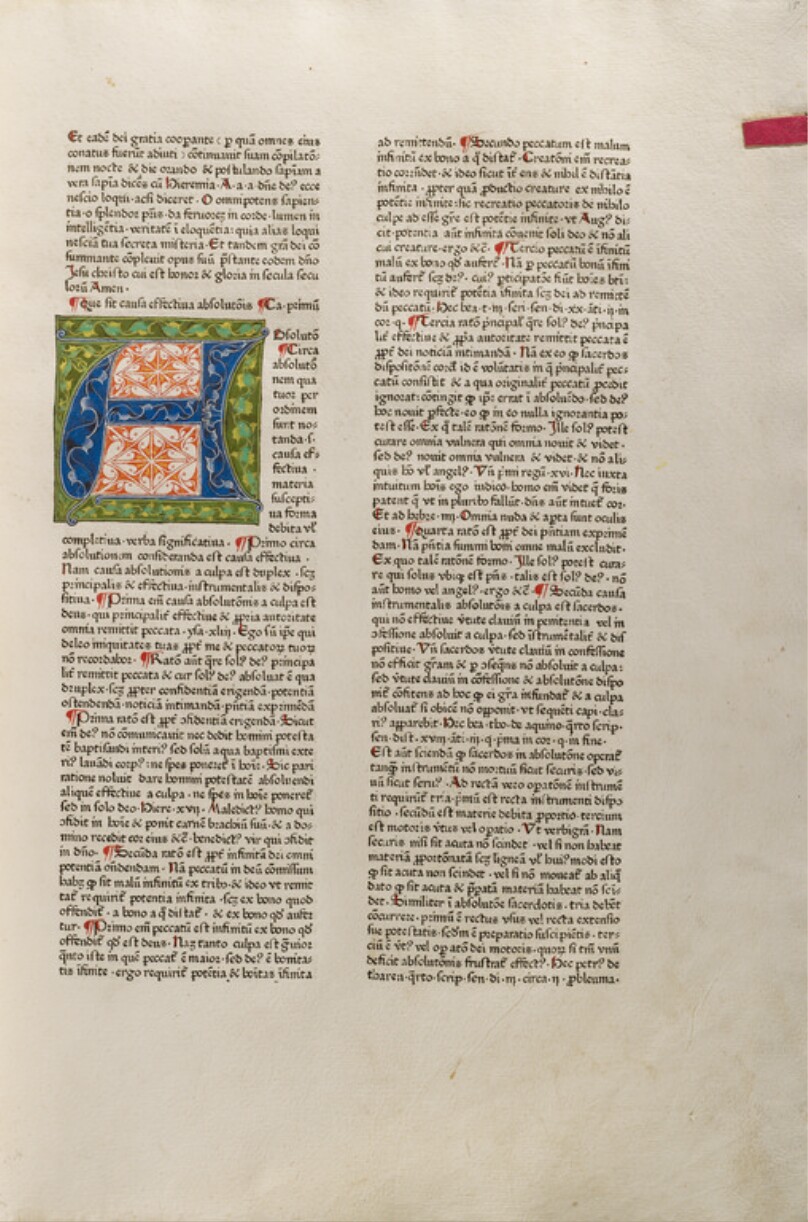 Et eadē dei gratia cooꝑante ⁊ ꝑ quā omnes eius
conatus fuerūt adiuti ⁊ cōtinuauit suam cōpilatō⸗
nem nocte & die orando & postulando sapiam a
vera sapia dicēs cū Hieremia · A · a · a · dn̄e de? ecce
nescio loqui · acsi diceret · O omnipotens sapien⸗
tia · o splendor pn̄is · da feruorē in corde · lumen in
intelligētia · veritatē ī eloquētia: quia alias loqui
nesciā tua secreta misteria · Et tandem grā dei cō
summante cōpleuit opus suū p̄stante eodem dn̄o
Jesu christo cui est honor & gloria in secula secu
lorū Amen ·
¶Que sit causa effectiua absolutōis ¶Ca · primū
A Bsolutō
¶Circa
absolutō
nem qua
tuor per
ordinem
sunt no⸗
tanda · s ·
causa ef⸗
fectiua ·
materia
suscepti⸗
ua forma
debita vł
completiua · verba significatiua · ¶Primo circa
absolutionem consideranda est causa effectiua ·
Nam causa absolutionis a culpa est duplex · scꝫ
principalis & effectiua · instrumentalis & dispo⸗
sitiua · ¶Prima em̄ causa absolutōnis a culpa est
deus · qui principalit̄ effectiue & ꝓpria autoritate
omnia remittit peccata · ysa · xliij · Ego sū ip̄e qui
deleo iniquitates tuas ꝓpt̄ me & peccatoꝝ tuoꝝ
nō recordabor · ¶Ratō aūt q̄re sol? de? principa
lit̄ remittit peccata & cur sol? de? absoluat ē qua
druplex · scꝫ ꝓpter confidentiā erigendā · potentiā
ostendendā · noticiā intimandā · pn̄tiā exprimēdā
¶Prima ratō est ꝓpt̄ ɔfidentiā erigendā · Sicut
em̄ de? nō cōmunicauit nec dedit homini potesta
tē baptisandi interi? sed solū aqua baptismi exte
ri? lauādi corp? : ne spes poneret̄ ī hoīe · Sic pari
ratione noluit dare homini potestatē absoluendi
aliquē effectiue a culpa · ne spes in hoīe poneret̄
sed in solo deo · Hiere · xvij · Maledict? homo qui
ɔfidit in hoīe & ponit carnē brachiū suū · & a do⸗
mino recedit cor eius &c̄ · benedict? vir qui ɔfidit
in dn̄o · ¶Secūda ratō est ꝓpt̄ infinitā dei omni
potentiā on̄dendam · Nā peccatū in deū cōmissum
habꝫ ꝙ sit malū infinitū ex tribꝰ · & ideo vt remit
tat̄ requirit̄ potentia infinita · scꝫ ex bono quod
offendit̄ · a bono a q̄ distat̄ · & ex bono qd̄ aufer
tur · ¶Primo em̄ peccatū est infinitū ex bono qd̄
offendit̄ qd̄ est deus · Naꝫ tanto culpa est g̊uior
q̄nto iste in quē peccat̄ ē maior · sed de? ē bonita⸗
tis īfinite · ergo requirit̄ potētia & boītas īfinita
ad remittendū · ¶Secundo peccatum est malum
infinitū ex bono a q̄ distat̄ · Creatōni em̄ recrea⸗
tio corrn̄det · & ideo sicut īt̄ ens & nihil ē distātia
infinita · ꝓpter quā ꝓductio creature ex nihilo ē
potētie infinite: sic recreatio peccatoris de nihilo
culpe ad esse gr̄e est potētie infinite · vt Aug? di⸗
cit · potentia aūt infinita cōuenit soli deo & nō ali
cui creature · ergo &c̄ · ¶Tercio peccatū ē īfinitū
malū ex bono qd̄ aufert̄ · Nā ꝑ peccatū bonū īfini
tū aufert̄ scꝫ de? · cui? ꝑticipatōe fiūt hoīes bt̄i:
& ideo requirit̄ potētia īfinita scꝫ dei ad remittē
dū peccatū · Hec bea · t · in · scri · sen · di · xx · āti · ij · in
cor · q · ¶Tercia ratō p̄ncipał q̄re sol? de? p̄ncipa
lit̄ effectiue & ꝓpia autoritate remittit peccata ē
ꝓpt̄ dei noticiā intimandā · Nā ex eo ꝙ sacerdos
dispositōnē cord̄ id ē volūtatis in q̄ p̄ncipalit̄ pec⸗
catū consistit & a qua originalit̄ peccatū ꝓcedit
ignorat: cōtingit ꝙ ip̄e errat ī absoluēdo · sed de?
hoc nouit ꝑfecte · eo ꝙ in eo nulla ignorantia po⸗
test esse · Ex q̄ talē ratōnē formo · Ille sol? potest
curare omnia vulnera qui omnia nouit & videt ·
sed de? nouit omnia vulnera & videt · & nō ali⸗
quis hō vł angel? · Vn̄ p̄mi regū · xvi · Nec iuxta
intuitum hoīs ego iudico · homo em̄ videt q̄ foris
patent q̄ vt in pluribꝰ fallūt · dn̄s aūt intuet̄ cor ·
Et ad hebre · iiij · Omnia nuda & apta sunt oculis
eius · ¶Quarta ratō est ꝓpt̄ dei pn̄tiam exprimē
dam · Nā pn̄tia summi boni omne malū excludit ·
Ex quo talē ratōnē formo · Ille sol? potest cura⸗
re qui solus vbiqꝫ est pn̄s · talis est sol? de? · nō
aūt homo vel angel? · ergo &c̄ · ¶Secūda causa
instrumentalis absolutōis a culpa est sacerdos ·
qui nō effectiue v̄tute clauiū in penitentia vel in
ɔfessione absoluit a culpa · sed īstrumētalit̄ & dis
positiue · Vn̄ sacerdos v̄tute clauiū in confessione
nō efficit gram̄ & ꝑ ɔseqn̄s nō absoluit a culpa:
sed v̄tute clauiū in cōfessione & absolutōne dispo
nit cōfitens ad hoc ꝙ ei gr̄a infundat̄ & a culpa
absoluat̄ si obicē nō opponit · vt sequēti capi · cla⸗
ri? apparebit · Hec bea · tho · de aquino · q̄rto scrip ·
sen · dist · xviij · āti · iij · q · p̄ma in cor · q · in fine ·
Est aūt sciendū ꝙ sacerdos in absolutōne operat̄
tanqꝫ instrumētū nō mortuū sicut securis · sed vi⸗
uū sicut seru? · Ad rectā vero opatōnē instrumē
ti requirūt̄ tria · p̄mū est recta instrumenti dispo
sitio · secūdū est materie debita ꝓportio · tercium
est motoris v̄tus vel opatio · Vt verbigrā · Nam
securis nisi sit acuta nō scindet · vel si non habeat
materiā ꝓportōnatā scꝫ ligneā vł hui? modi esto
ꝙ sit acuta non scindet · vel si nō moueat̄ ab aliq̄
dato ꝙ sit acuta & p̄patā materiā habeat nō scī⸗
det · Similiter ī absolutōe sacerdotis · tria debēt
cōcurrere · primū ē rectus vsus vel recta extensio
sue potestatis · scd̄m ē preparatio suscipiētis · ter⸗
ciū ē v̄t? vel opatō dei motoris · quoꝝ si tm̄ vnū
deficit absolutōnis frustrat̄ effect? · Hec petr? de
tharen · q̄rto · scrip · sen · di · iij · circa · ij · ꝓbleuma ·